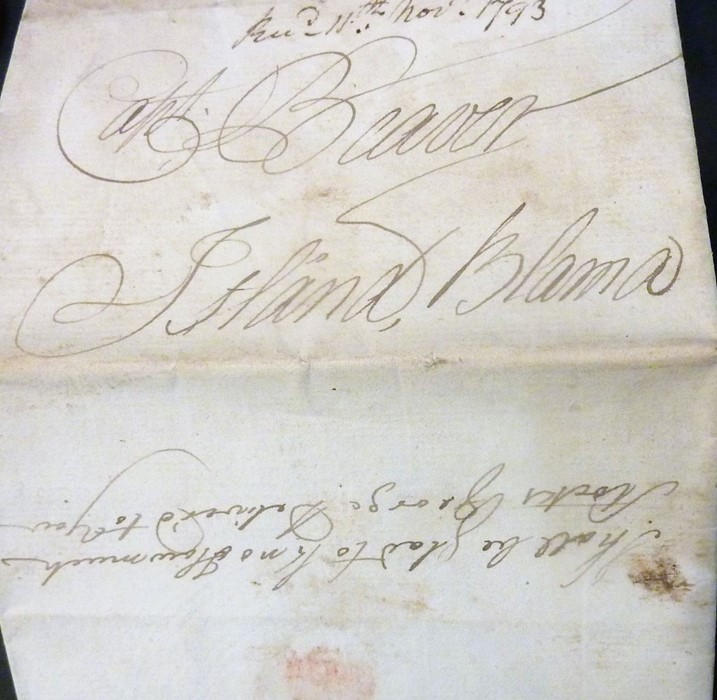 Rec.d 11.th Nov.r 1793
Capt. Beaver
Island, Blama
Shall be glad to kno Howmuch
Stocks George Deliver'd to You